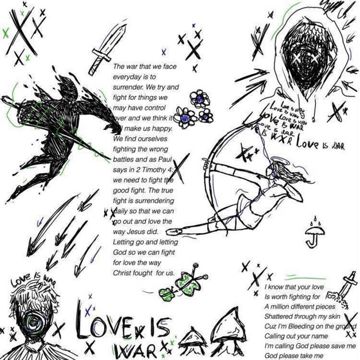 The war that we face
everyday is to
surrender. We try and
fight for things we
may have control
over and we think it
will make us happy.
We find ourselves
fighting the wrong
battles and as Paul
says in 2 Timothy 4:
we need to fight the
good fight. The true
fight is surrendering
daily so that we can
go out and love the
way Jesus did.
Letting go and letting
God so we can fight
for love the way
Christ fought for us.
Love is war
Love is war
LOVE IS WAR
LOVE IS WAR
LOVE IS WAR
LOVE IS WAR
LOVE IS
WAR
I know that your love
Is worth fighting for
A million different pieces
Shattered through my skin
Cuz I'm Bleeding on the ground
Calling out your name
I'm calling God please save me
God please take me